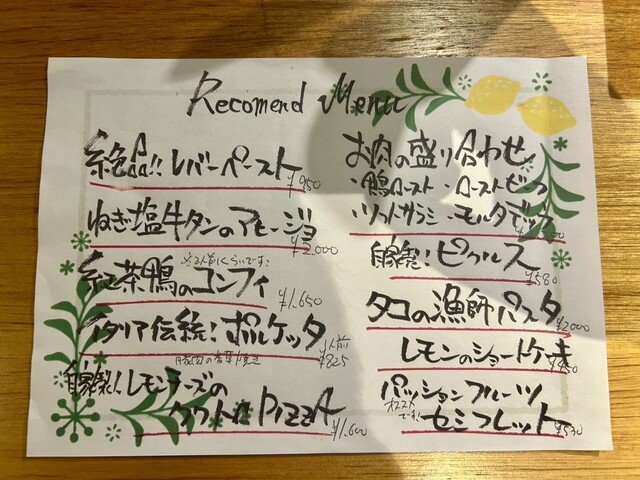 Recomend Menu
絶品!! レバーペースト
¥950
ねぎ塩牛タンのアヒージョ
¥2,000
※2人前くらいです!
紅茶鴨のコンフィ
¥1,650
イタリア伝統! ポルケッタ
1人前
¥825
自家製! レモンチーズの
クワトロ PIZZA
¥1,600
お肉の盛り合わせ
・鴨ロースト ・ローストビーフ
モルタデッラ
自家製! ピクルス
¥580
タコの漁師パスタ
¥2000
レモンのショートケーキ
パッションフルーツ
オススメ
です!
セミフレット
¥530